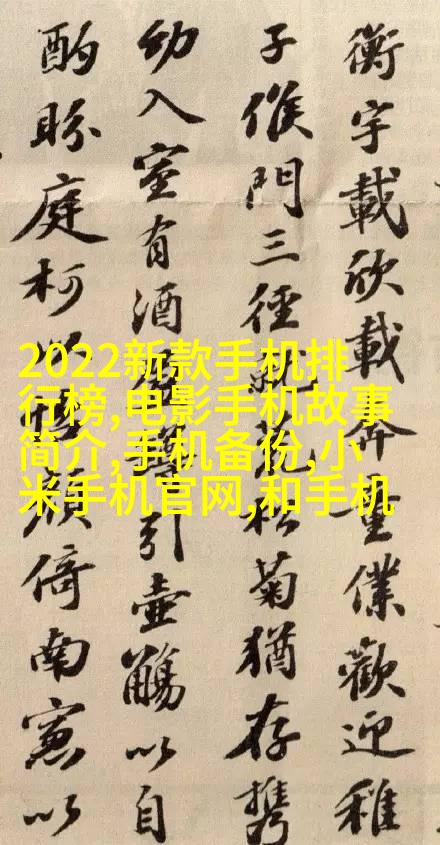 衡宇載欣載奔童僕歡迎稚
子候門三徑就荒松菊猶存攜
幼入室有酒盈樽引壺觴以自
酌眄庭柯以怡顏倚南窗以
2022新款手机排
行榜,电影手机故事
简介,手机备份,小
米手机官网,和手机